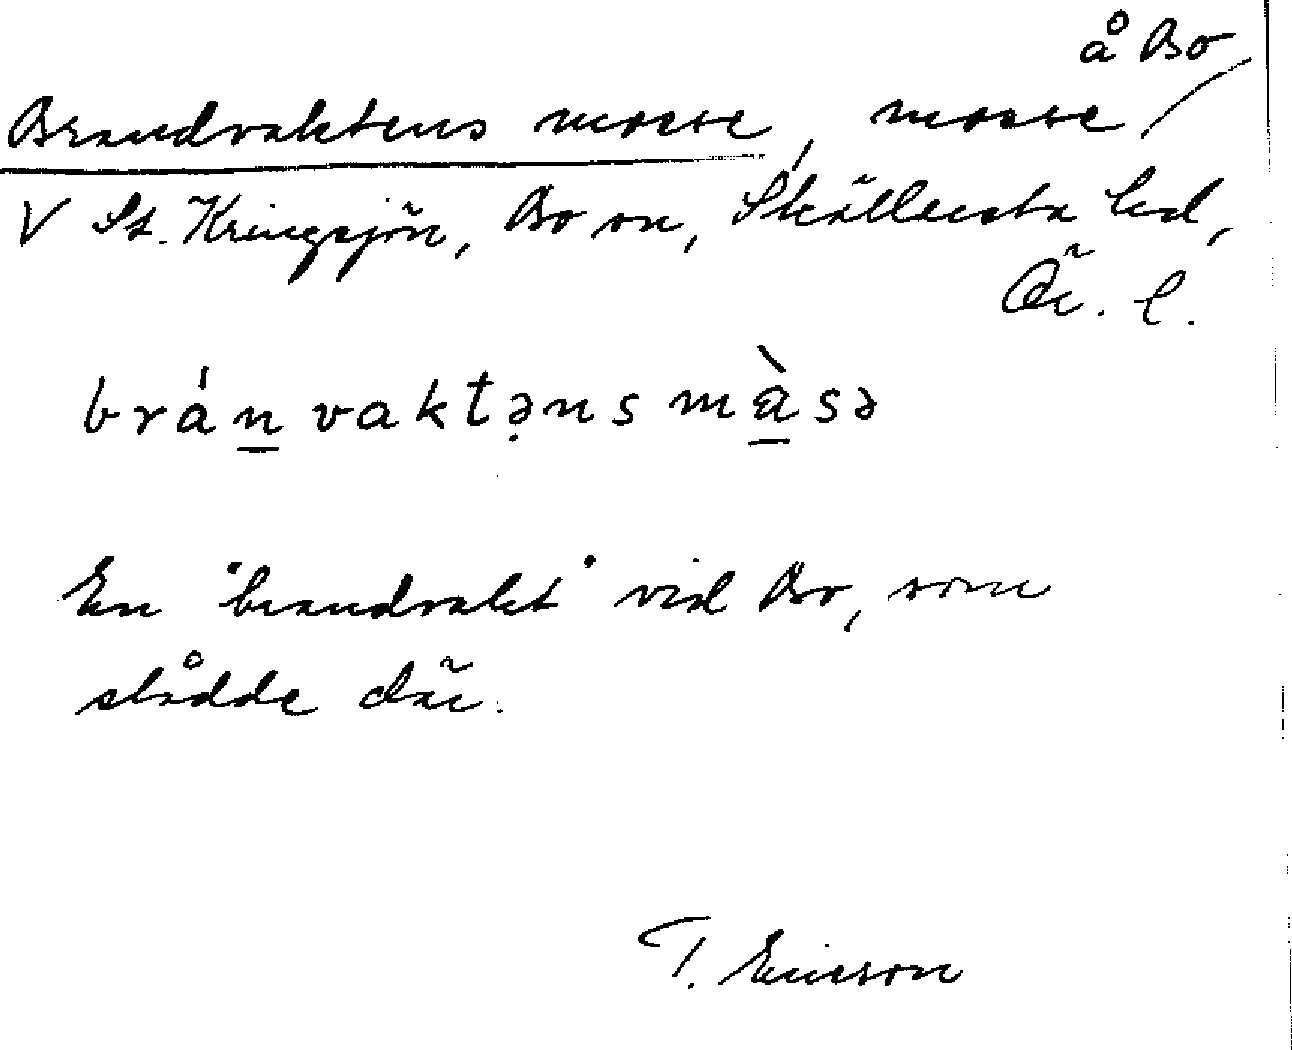 å Bo
Brandvaktens mosse, mosse /
V St. Kringsjön, Bo sn, Skyllersta hd,
Ör. l.
brán vaktəns màsə
En "brandvakt" vid Bo, som
slådde där.
T. Ericson